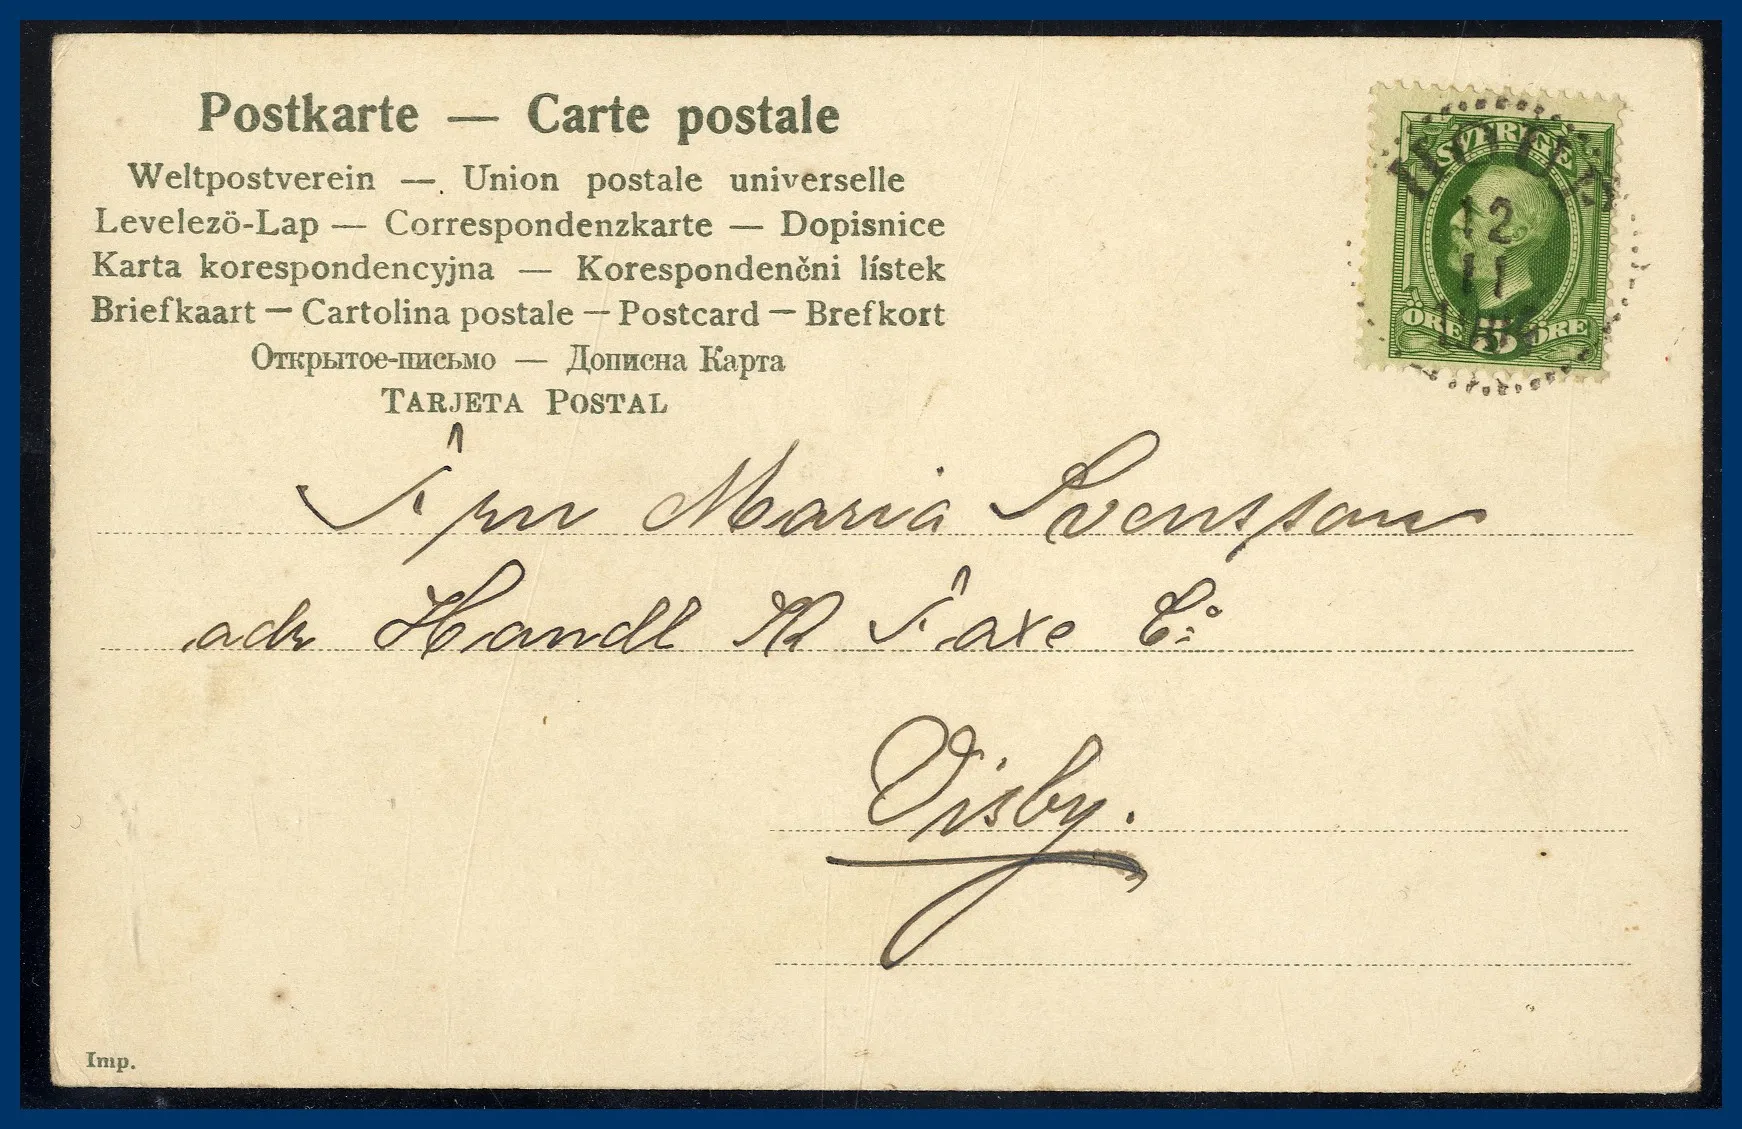 Postkarte — Carte postale
Weltpostverein — Union postale universelle
Levelezö-Lap — Correspondenzkarte — Dopisnice
Karta korespondencyjna — Korespondenčni lístek
Briefkaart — Cartolina postale — Postcard — Brefkort
Открытое-письмо — Дописна Карта
TARJETA POSTAL
SVERIGE
12
11
ÖRE 5 ÖRE
Frn Maria Svensson
adr Handl R Faxe Co
Visby.
Imp.